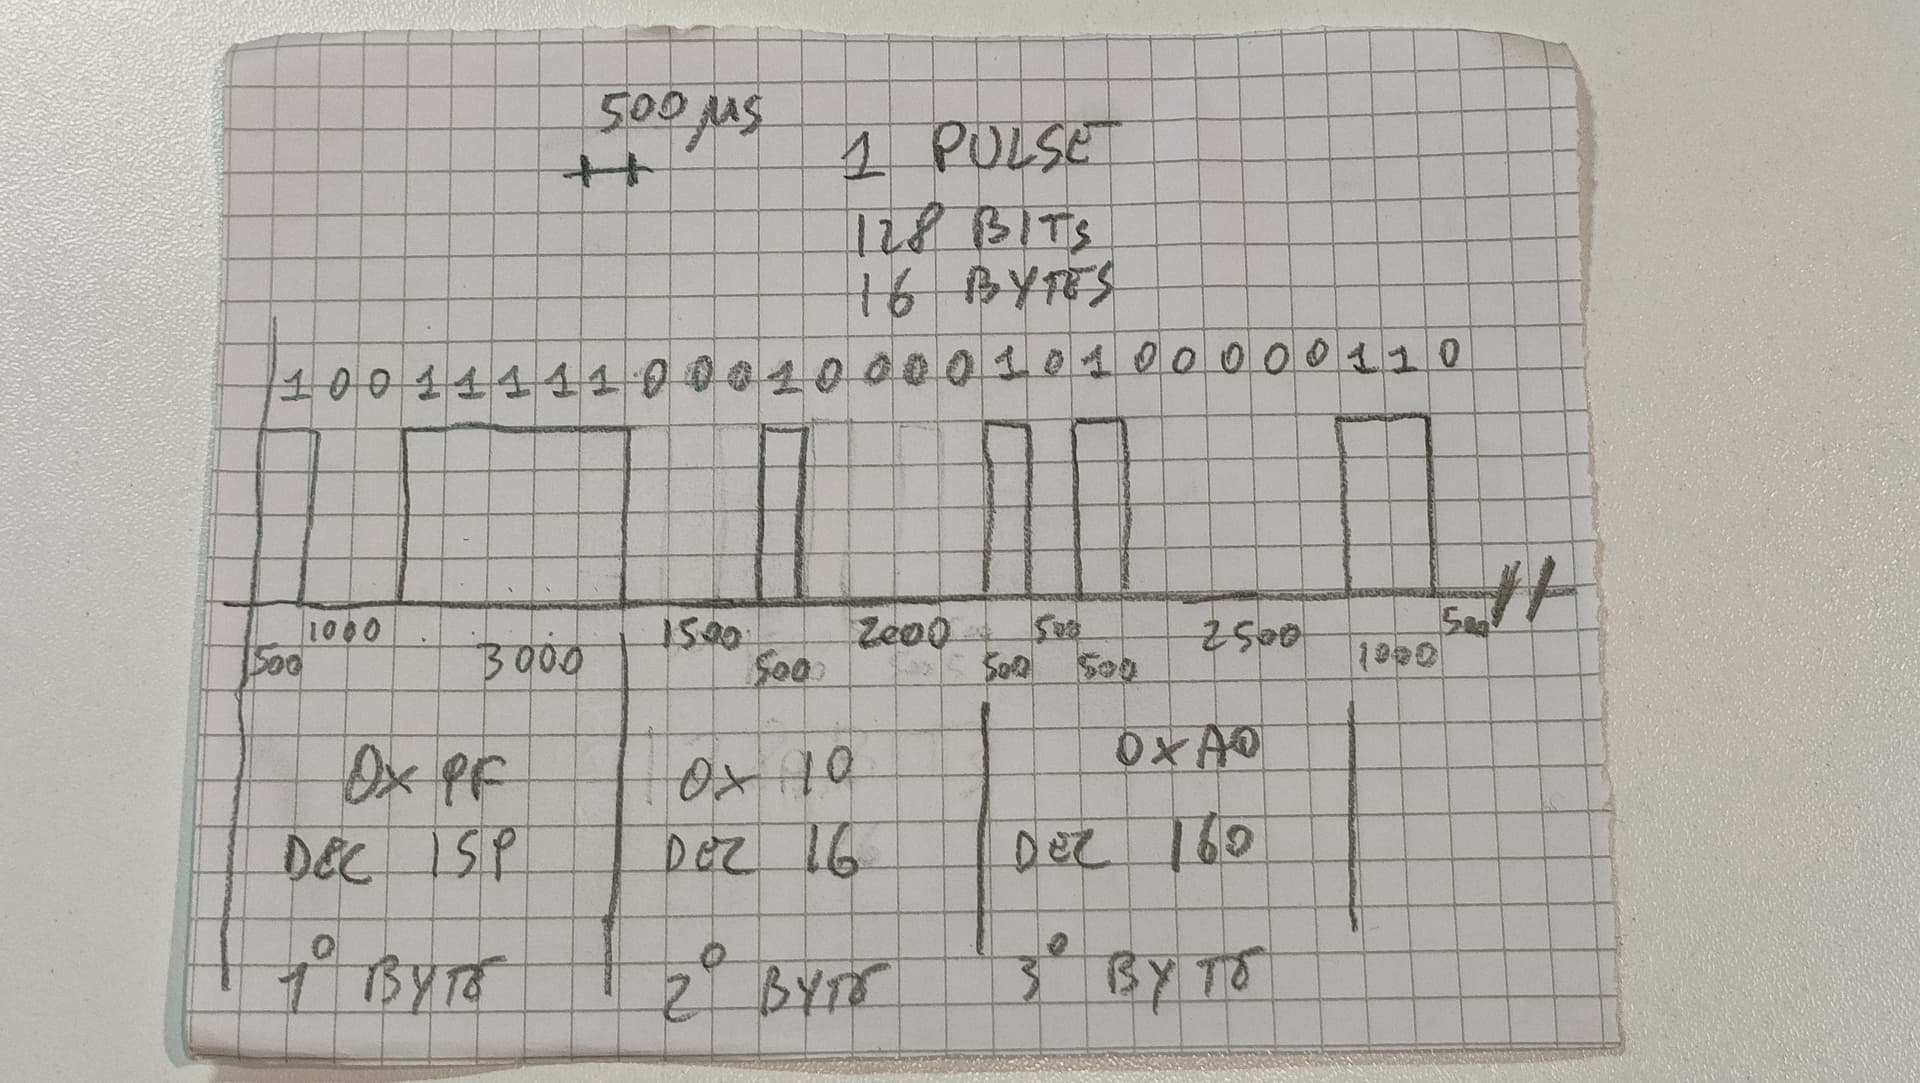 500 µs
1 PULSE
128 BITs
16 BYTES
1 0 0 1 1 1 1 1 0 0 0 1 0 0 0 0 1 0 1 0 0 0 0 0 1 1 0
1000 1500 2000 500 2500 500
500 3000 500 500 500 1000
0x 9F 0x 10 0xA0
DEC 159 DEC 16 DEC 160
1° BYTE 2° BYTE 3° BYTE